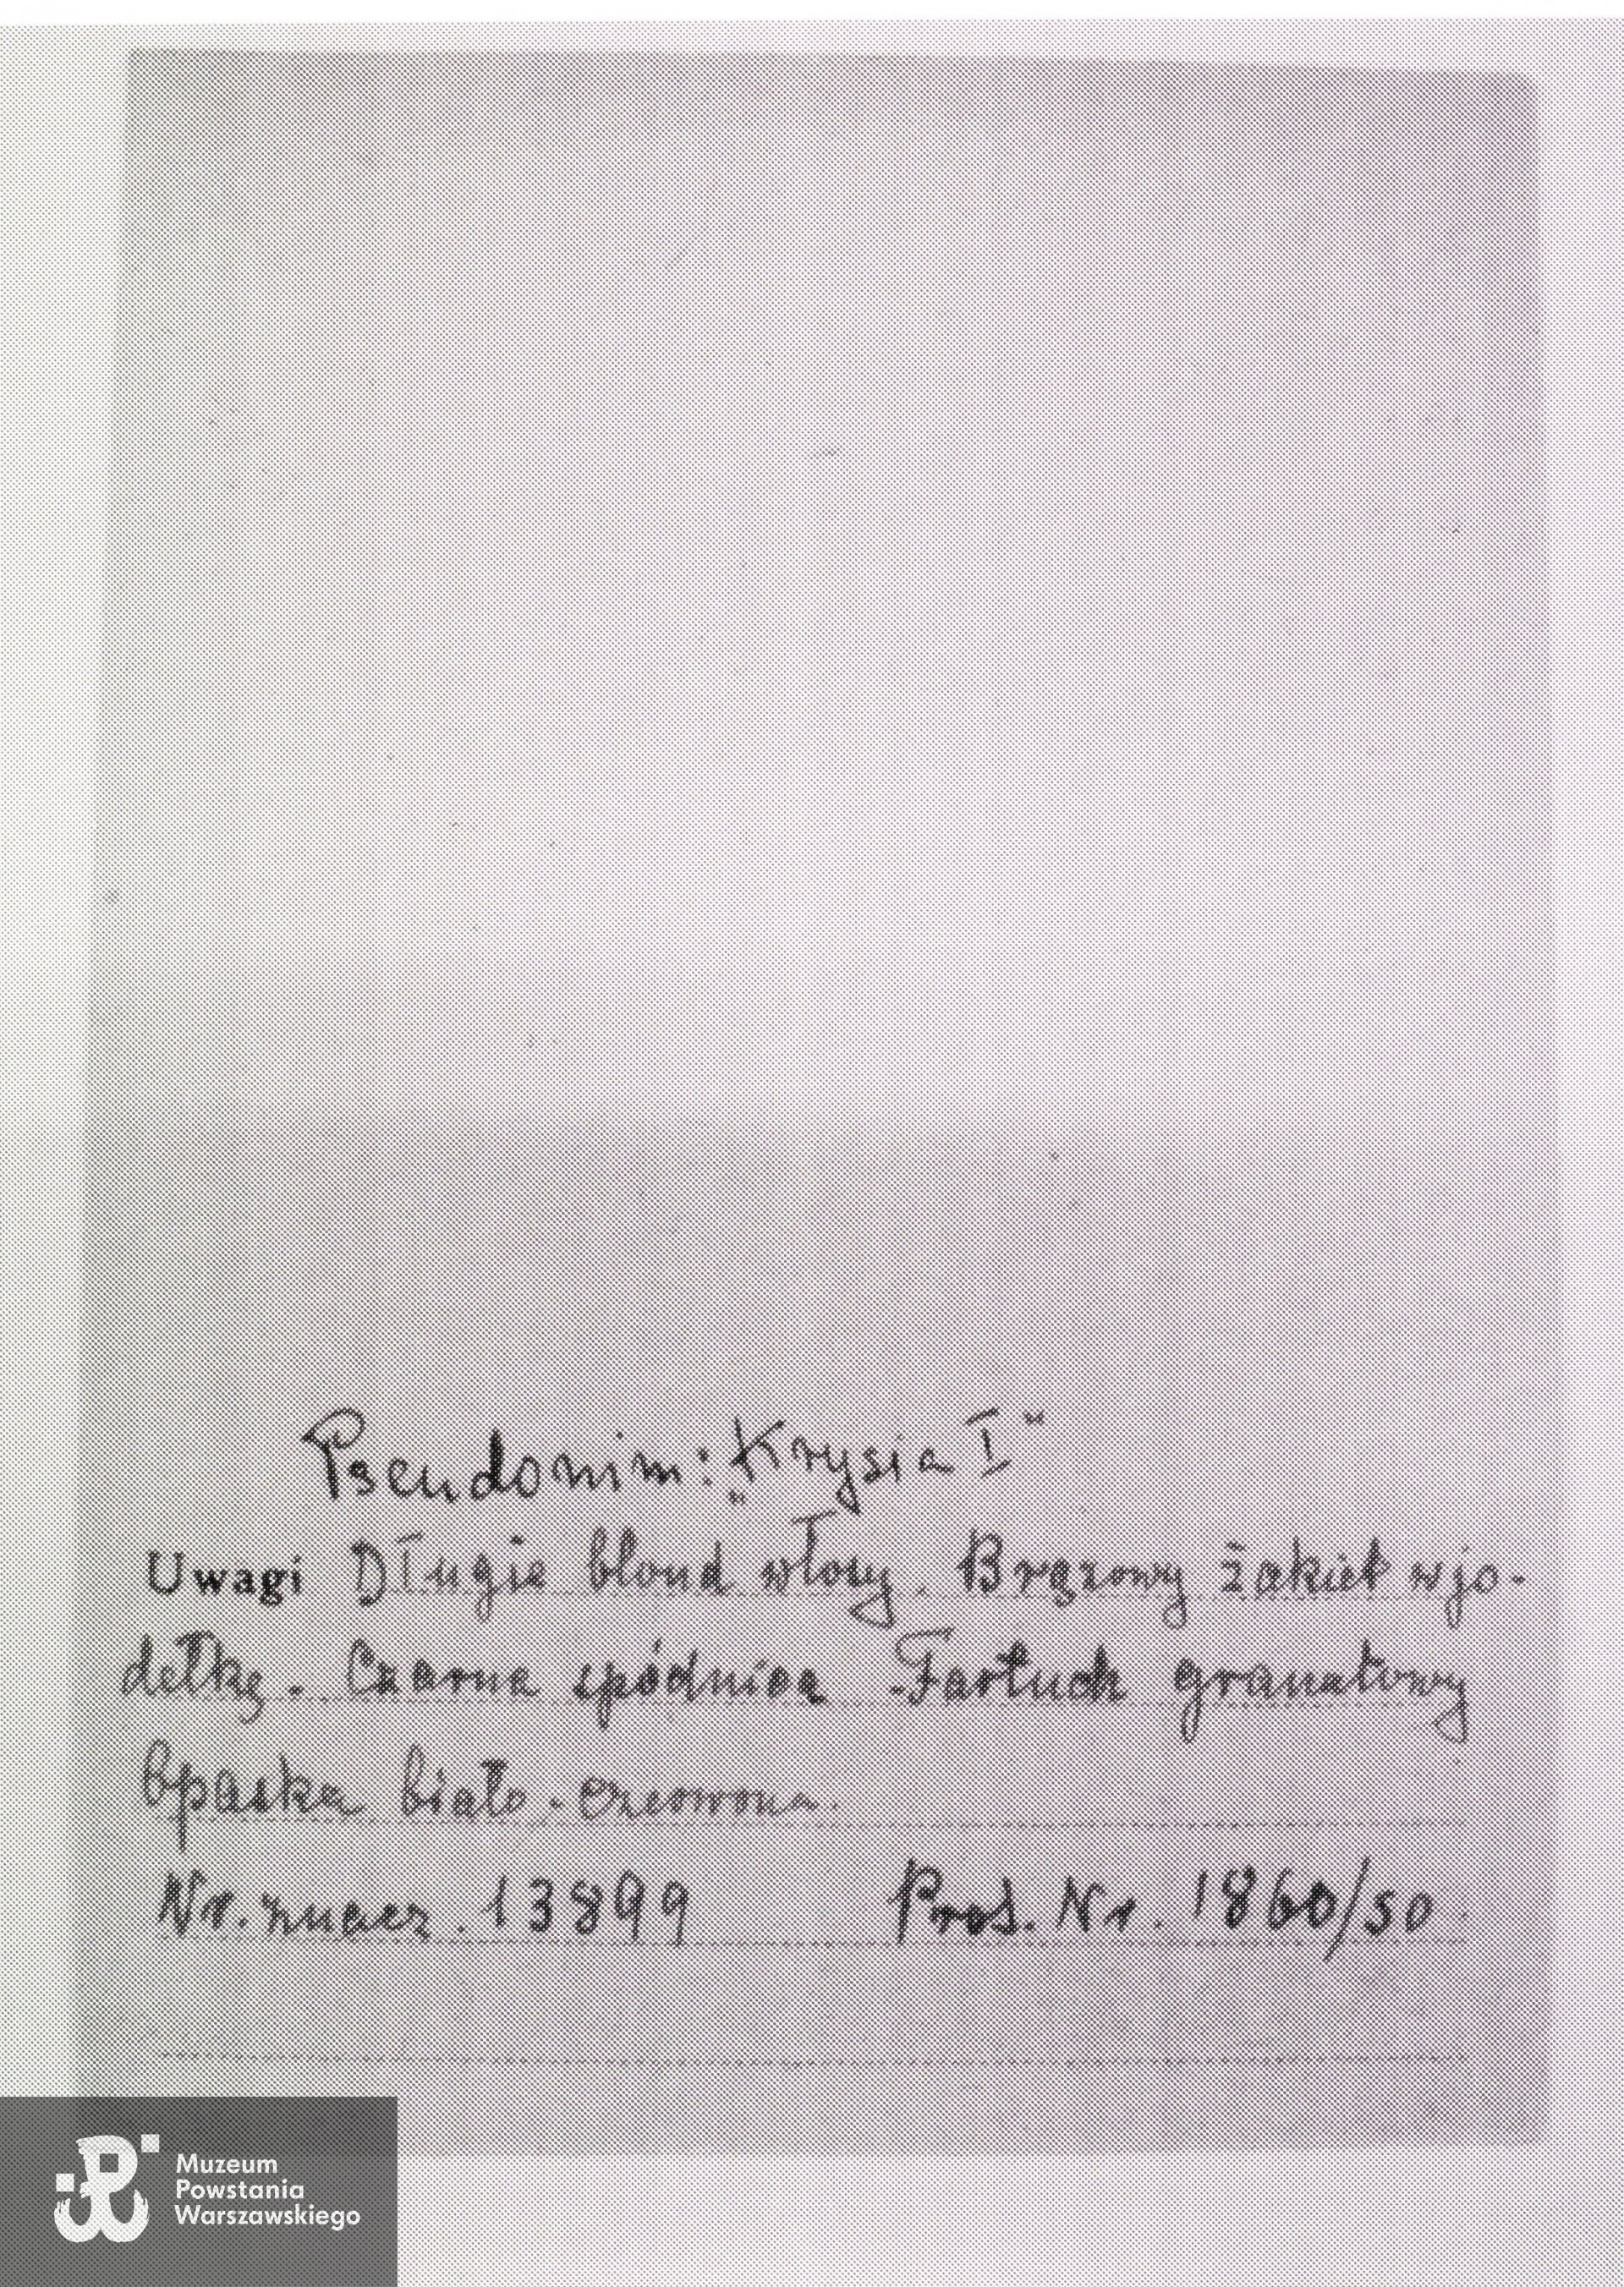 Pseudonim: „Krysia I"
Uwagi Długie blond włosy. Brązowy żakiet w jo-
dełkę. Czarna spódnica - Fartuch granatowy
Opaska biało - czerwona.
Nr. znacz. 13899 Prot. Nr. 1860/50.
Muzeum
Powstania
Warszawskiego